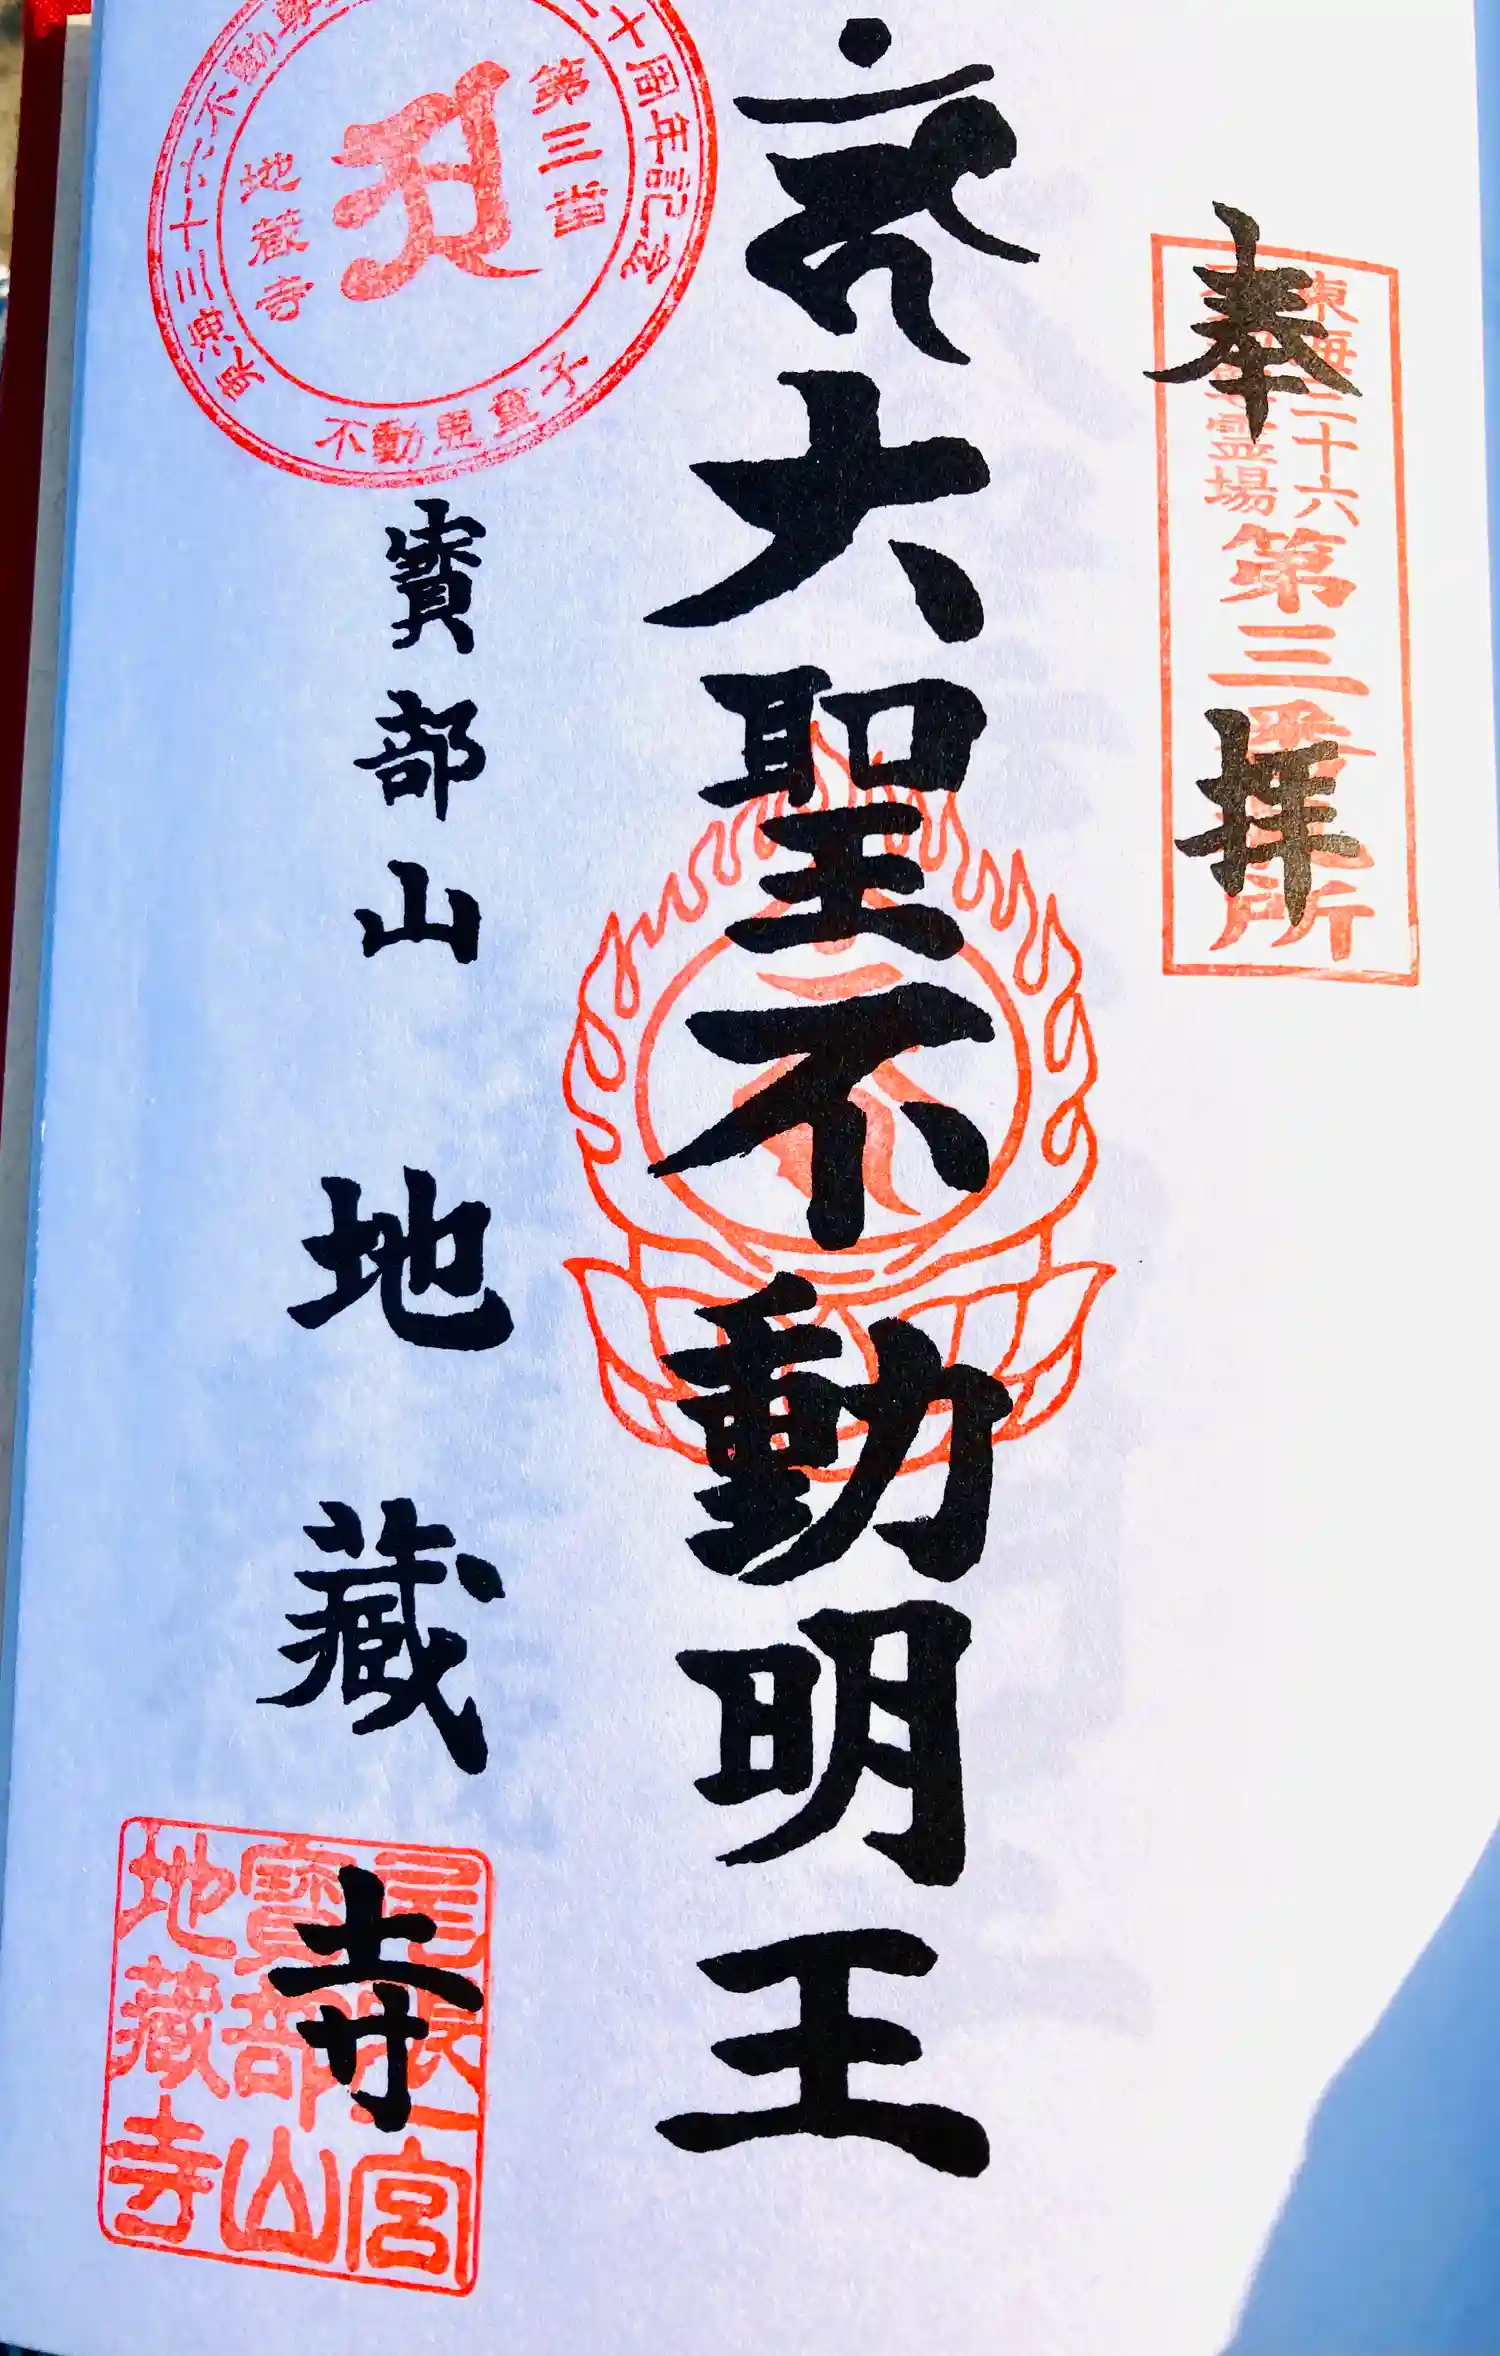 奉拝
東海三十六
不動尊霊場
第三番札所
大聖不動明王
寳部山
地藏寺
第三番
地蔵寺
十周年記念
東海三十六不動尊
不動恵童子
尾張一宮
寳部山
地藏寺